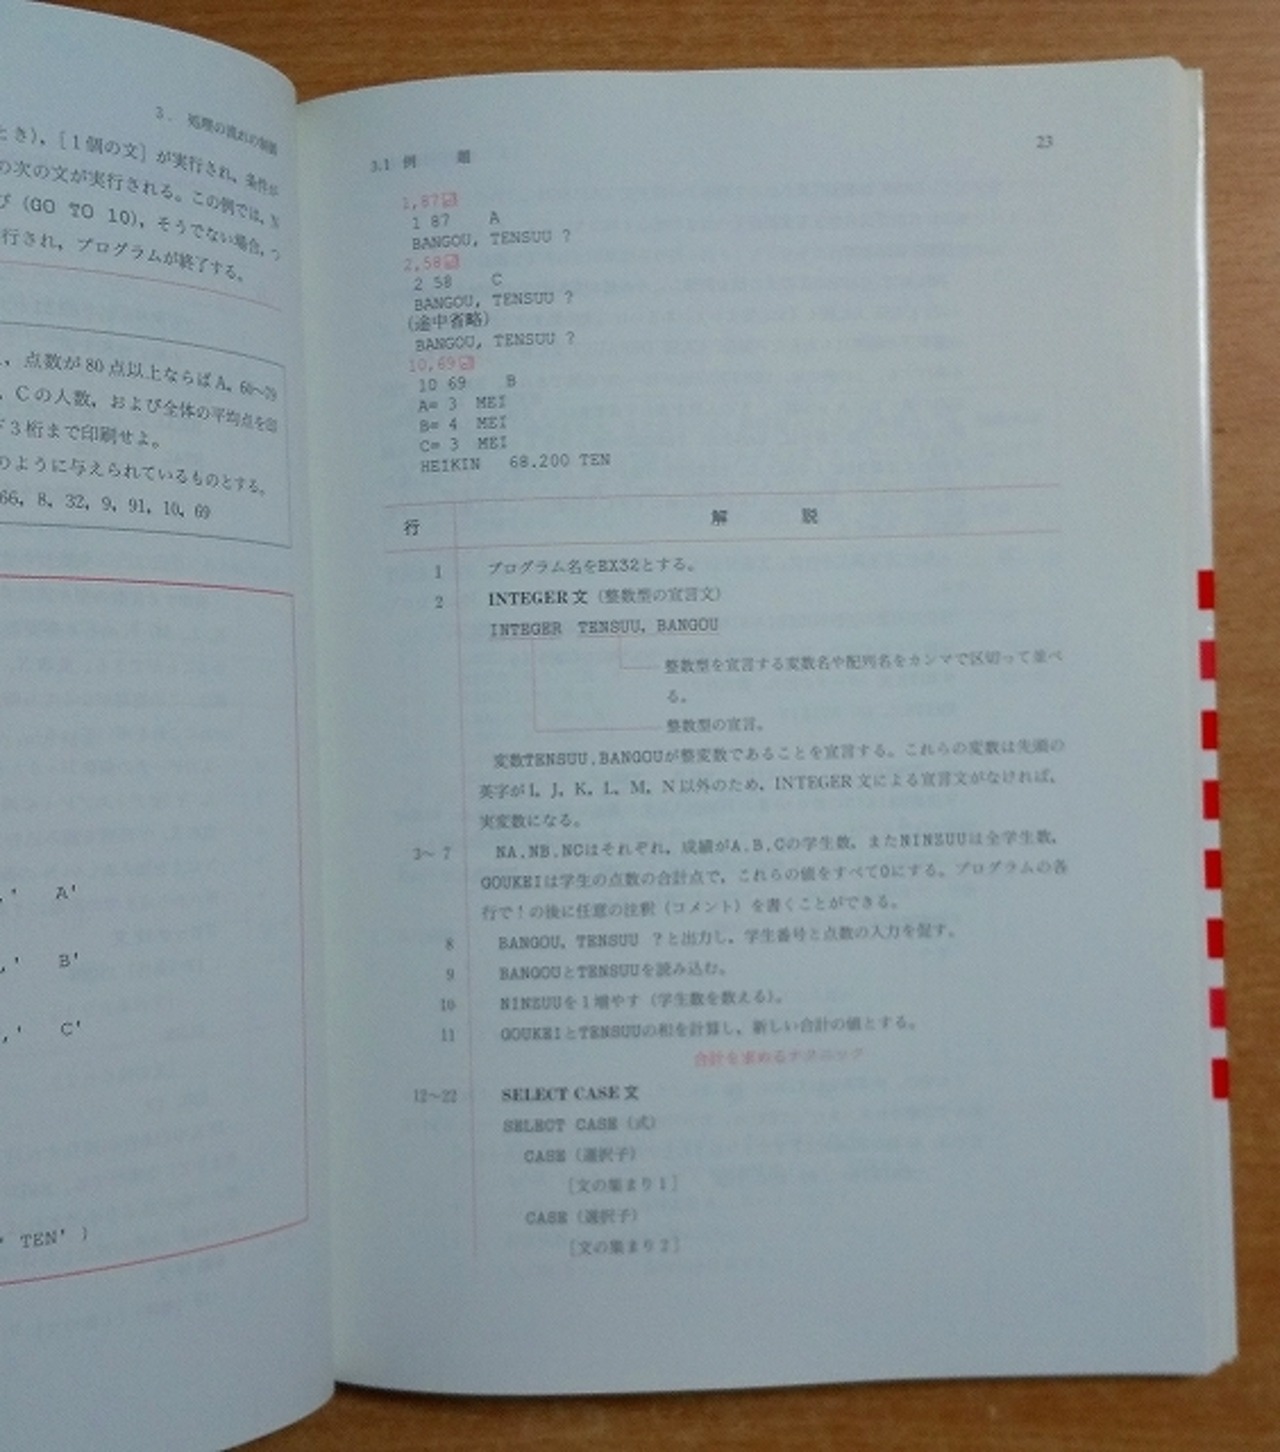 3. 処理の流れの制御
とき), [1個の文] が実行され, 条件が
の次の文が実行される。この例では,
び (GO TO 10), そうでない場合, つ
行され, プログラムが終了する。
, 点数が80点以上ならばA, 60〜79
, Cの人数, および全体の平均点を印
下3桁まで印刷せよ。
のように与えられているものとする。
66, 8, 32, 9, 91, 10, 69
,' A'
,' B'
,' C'
' TEN' )
3.1 例 題
23
1,87
1 87 A
BANGOU, TENSUU ?
2,58
2 58 C
BANGOU, TENSUU ?
(途中省略)
BANGOU, TENSUU ?
10,69
10 69 B
A= 3 MEI
B= 4 MEI
C= 3 MEI
HEIKIN 68.200 TEN
行 解 説
1 プログラム名をEX32とする。
2 INTEGER文 (整数型の宣言文)
INTEGER TENSUU, BANGOU
整数型を宣言する変数名や配列名をカンマで区切って並べ
る。
整数型の宣言。
変数TENSUU,BANGOUが整変数であることを宣言する。これらの変数は先頭の
英字がI, J, K, L, M, N以外のため, INTEGER文による宣言文がなければ,
実変数になる。
3〜7 NA,NB,NCはそれぞれ, 成績がA,B,Cの学生数, またNINZUUは全学生数,
GOUKEIは学生の点数の合計点で, これらの値をすべて0にする。プログラムの各
行で!の後に任意の注釈 (コメント) を書くことができる。
8 BANGOU, TENSUU ?と出力し, 学生番号と点数の入力を促す。
9 BANGOUとTENSUUを読み込む。
10 NINZUUを1増やす (学生数を数える)。
11 GOUKEIとTENSUUの和を計算し, 新しい合計の値とする。
合計を求めるテクニック
12〜22 SELECT CASE文
SELECT CASE (式)
CASE (選択子)
[文の集まり1]
CASE (選択子)
[文の集まり2]